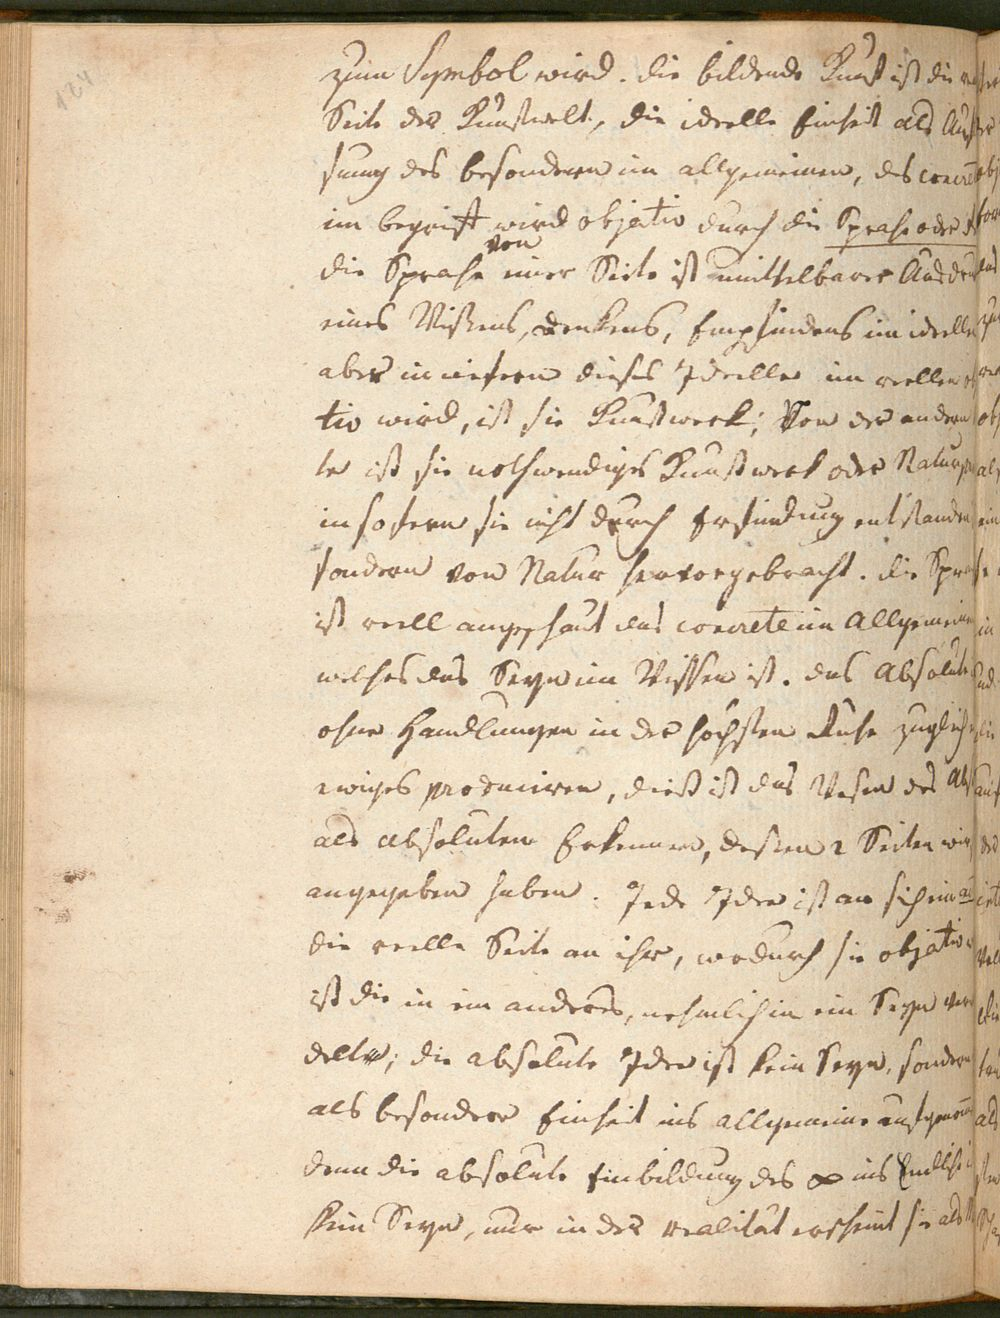 124
zum Symbol wird. die bildende Kunst ist die
Seite der Kunstwelt, die ideelle Einheit als
sung des besondern im allgemeinen, des concre
im begriff wird objectiv durch die Sprache oder
die Sprache von einer Seite ist mittelbarer Ausdru
eines Wißens, denkens, Empfindens im ideelle
aber in wiefern dieses Ideelle im reellen
tiv wird, ist sie Kunstwerk; Von der andern
te ist sie nothwendiges Kunstwerk oder Natur
in sofern sie nicht durch Erfindung entstanden
sondern von Natur hervorgebracht. die Spra
ist reell angeschaut das concrete im Allgemeinen
welches das Seyn im Wissen ist. das Absolute
ohne Handlungen in der höchsten Ruhe zugleich
ewiges produciren, dieß ist das Wesen des Abs
als absoluten Erkennen, dessen 2 Seiten wir
angegeben haben. Jede Idee ist an sich ein
die reelle Seite an ihr, wodurch sie objectiv
ist die in ein anderes, nehmlich in ein Seyn
delte; die absolute Idee ist kein Seyn, sondern
als besondere Einheit ins allgemeine aufgenom̄
denn die absolute Einbildung des ∞ ins Endliche
kein Seyn, nur in der realität erscheint sie als